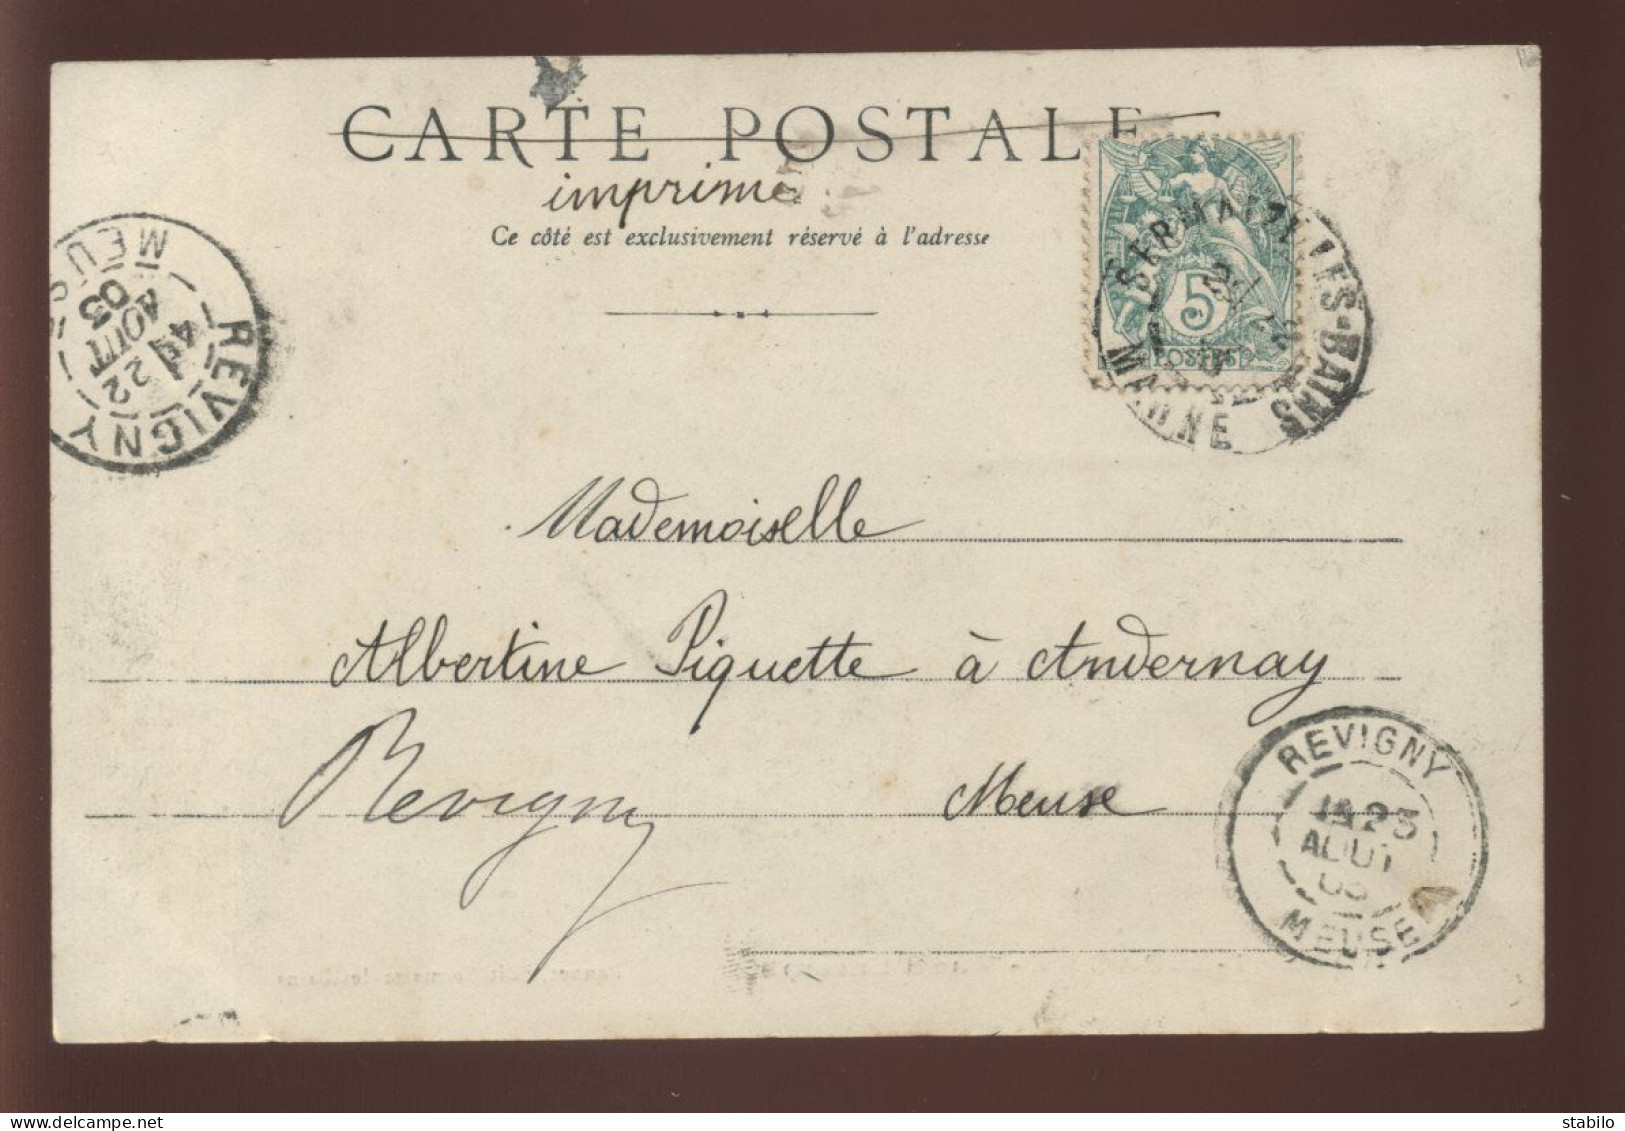 CARTE POSTALE
imprimé
Ce côté est exclusivement réservé à l'adresse
5
POSTES
SERMAIZE-LES-BAINS
MARNE
REVIGNY
4E 22
AOUT
03
MEUSE
Mademoiselle
Albertine Piquette à Andernay
Revigny Meuse
REVIGNY
23
AOUT
03
MEUSE
stabilo